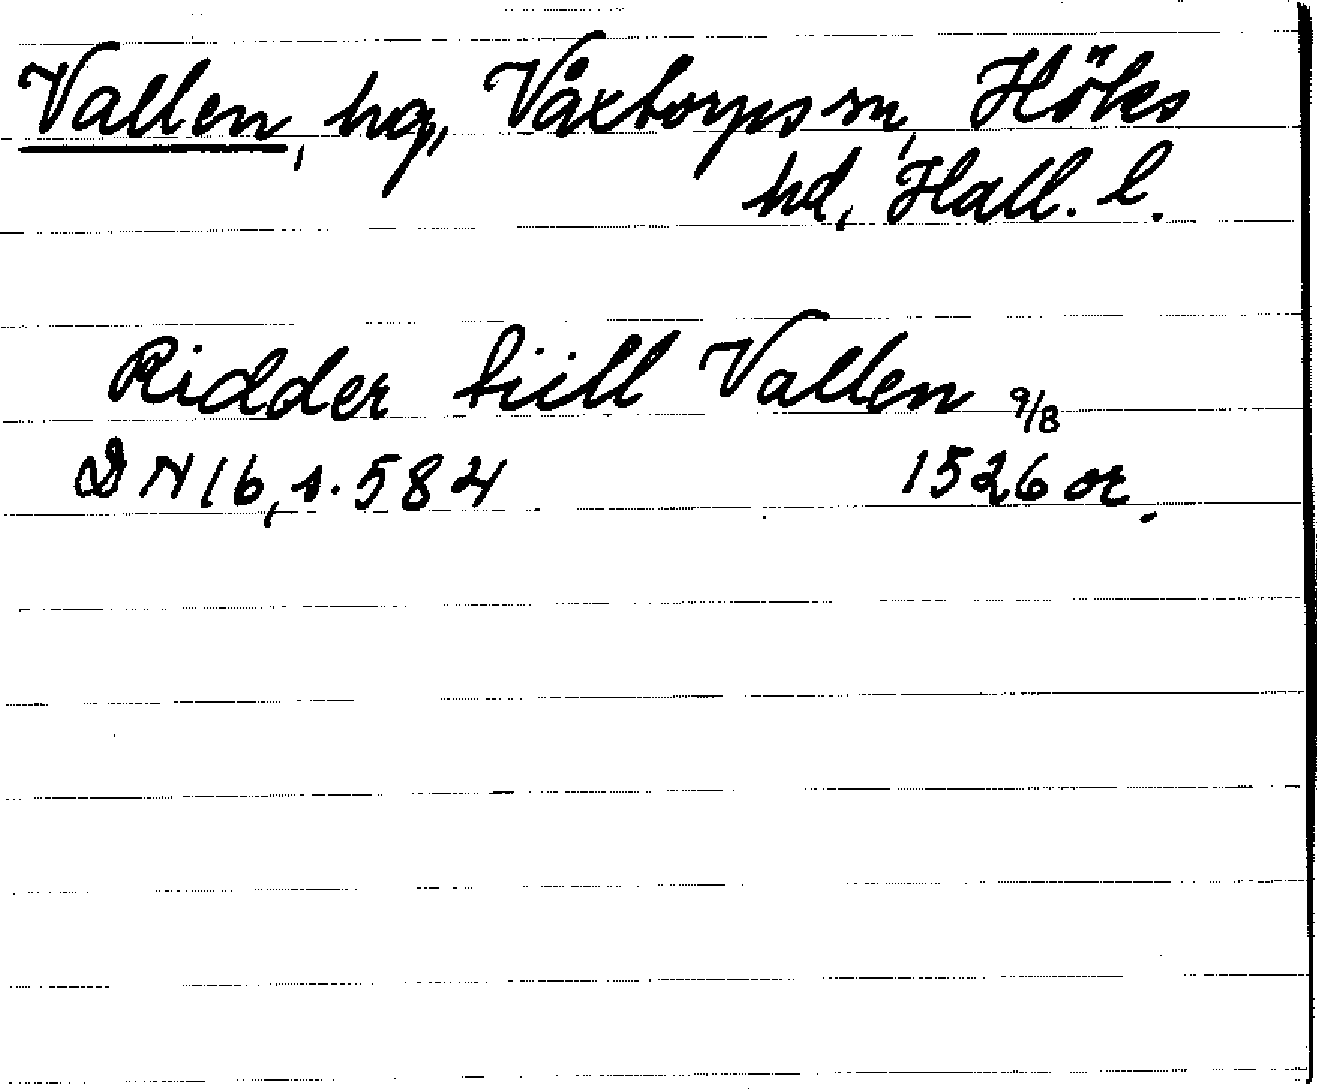 Vallen, hg, Våxtorps sn, Höks
hd, Hall. l.
Ridder tiill Vallen 9/8
DN 16, s. 584 1526 or.